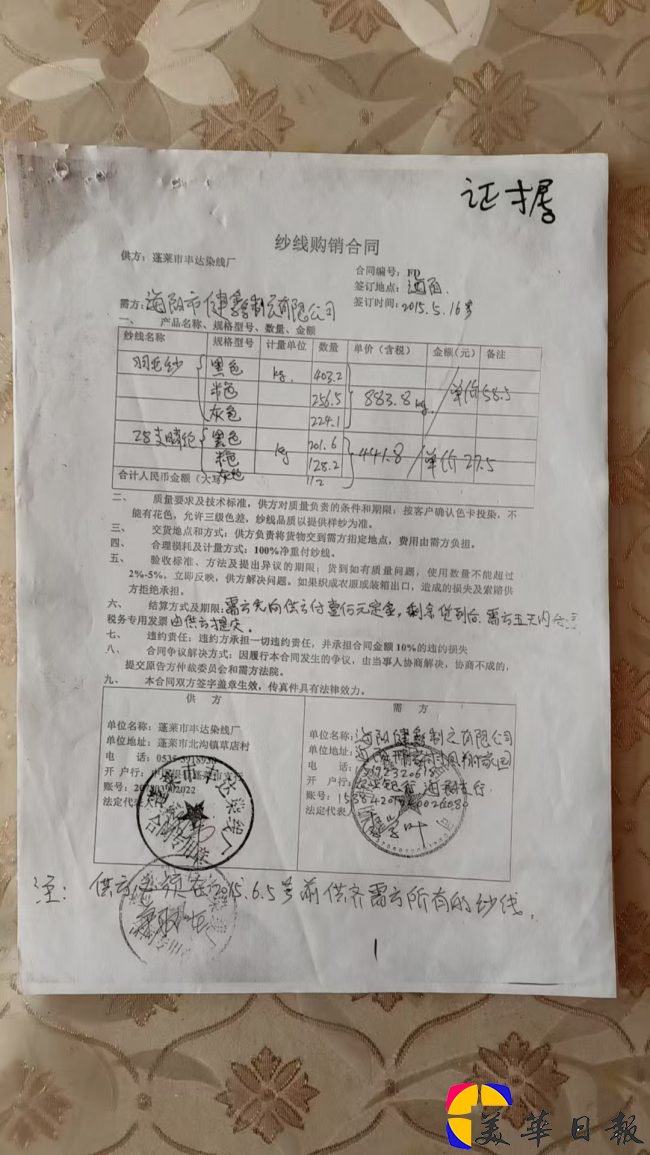 证据
纱线购销合同
供方：蓬莱市丰达染线厂
合同编号：FD
签订地点：海阳
需方：海阳市健鑫制衣有限公司
签订时间：2015.5.16号
一、 产品名称、规格型号、数量、金额
纱线名称 规格型号 计量单位 数量 单价（含税） 金额（元） 备注
羽毛纱 黑色 kg 403.2
米色 256.5 883.8kg 单价58.5
灰色 224.1
28支晴纶 黑色 kg 201.6
米色 128.2 441.8 单价27.5
灰色 112
合计人民币金额（大写）
二、 质量要求及技术标准，供方对质量负责的条件和期限：按客户确认色卡投染，不
能有花色，允许三级色差，纱线品质以提供样纱为准。
三、 交货地点和方式：供方负责将货物交到需方指定地点，费用由需方负担。
四、 合理损耗及计量方式：100%净重付纱线。
五、 验收标准、方法及提出异议的期限：货到如有质量问题，使用数量不能超过
2%-5%，立即反映，供方解决问题。如果织成衣服或装箱出口，造成的损失及索赔供
方拒绝承担。
六、 结算方式及期限：需方先向供方付壹仟元定金，剩余货到后，需方五天内
税务专用发票由供方提供。
七、 违约责任：违约方承担一切违约责任，并承担合同金额10%的违约损失
八、 合同争议解决方式：因履行本合同发生的争议，由当事人协商解决，协商不成的，
提交原告方仲裁委员会和需方法院。
九、 本合同双方签字盖章生效，传真件具有法律效力。
供 方 需 方
单位名称：蓬莱市丰达染线厂
单位地址：蓬莱市北沟镇草店村
电 话：0535-5918938
开 户 行：
账号：
法定代表人
单位名称：海阳健鑫制衣有限公司
单位地址：
电 话：
开 户 行：
账号：
法定代表人
蓬莱市丰达染线厂
合同专用章
注：供方必须在2015.6.5号前供齐需方所有的纱线。
1
美華日報